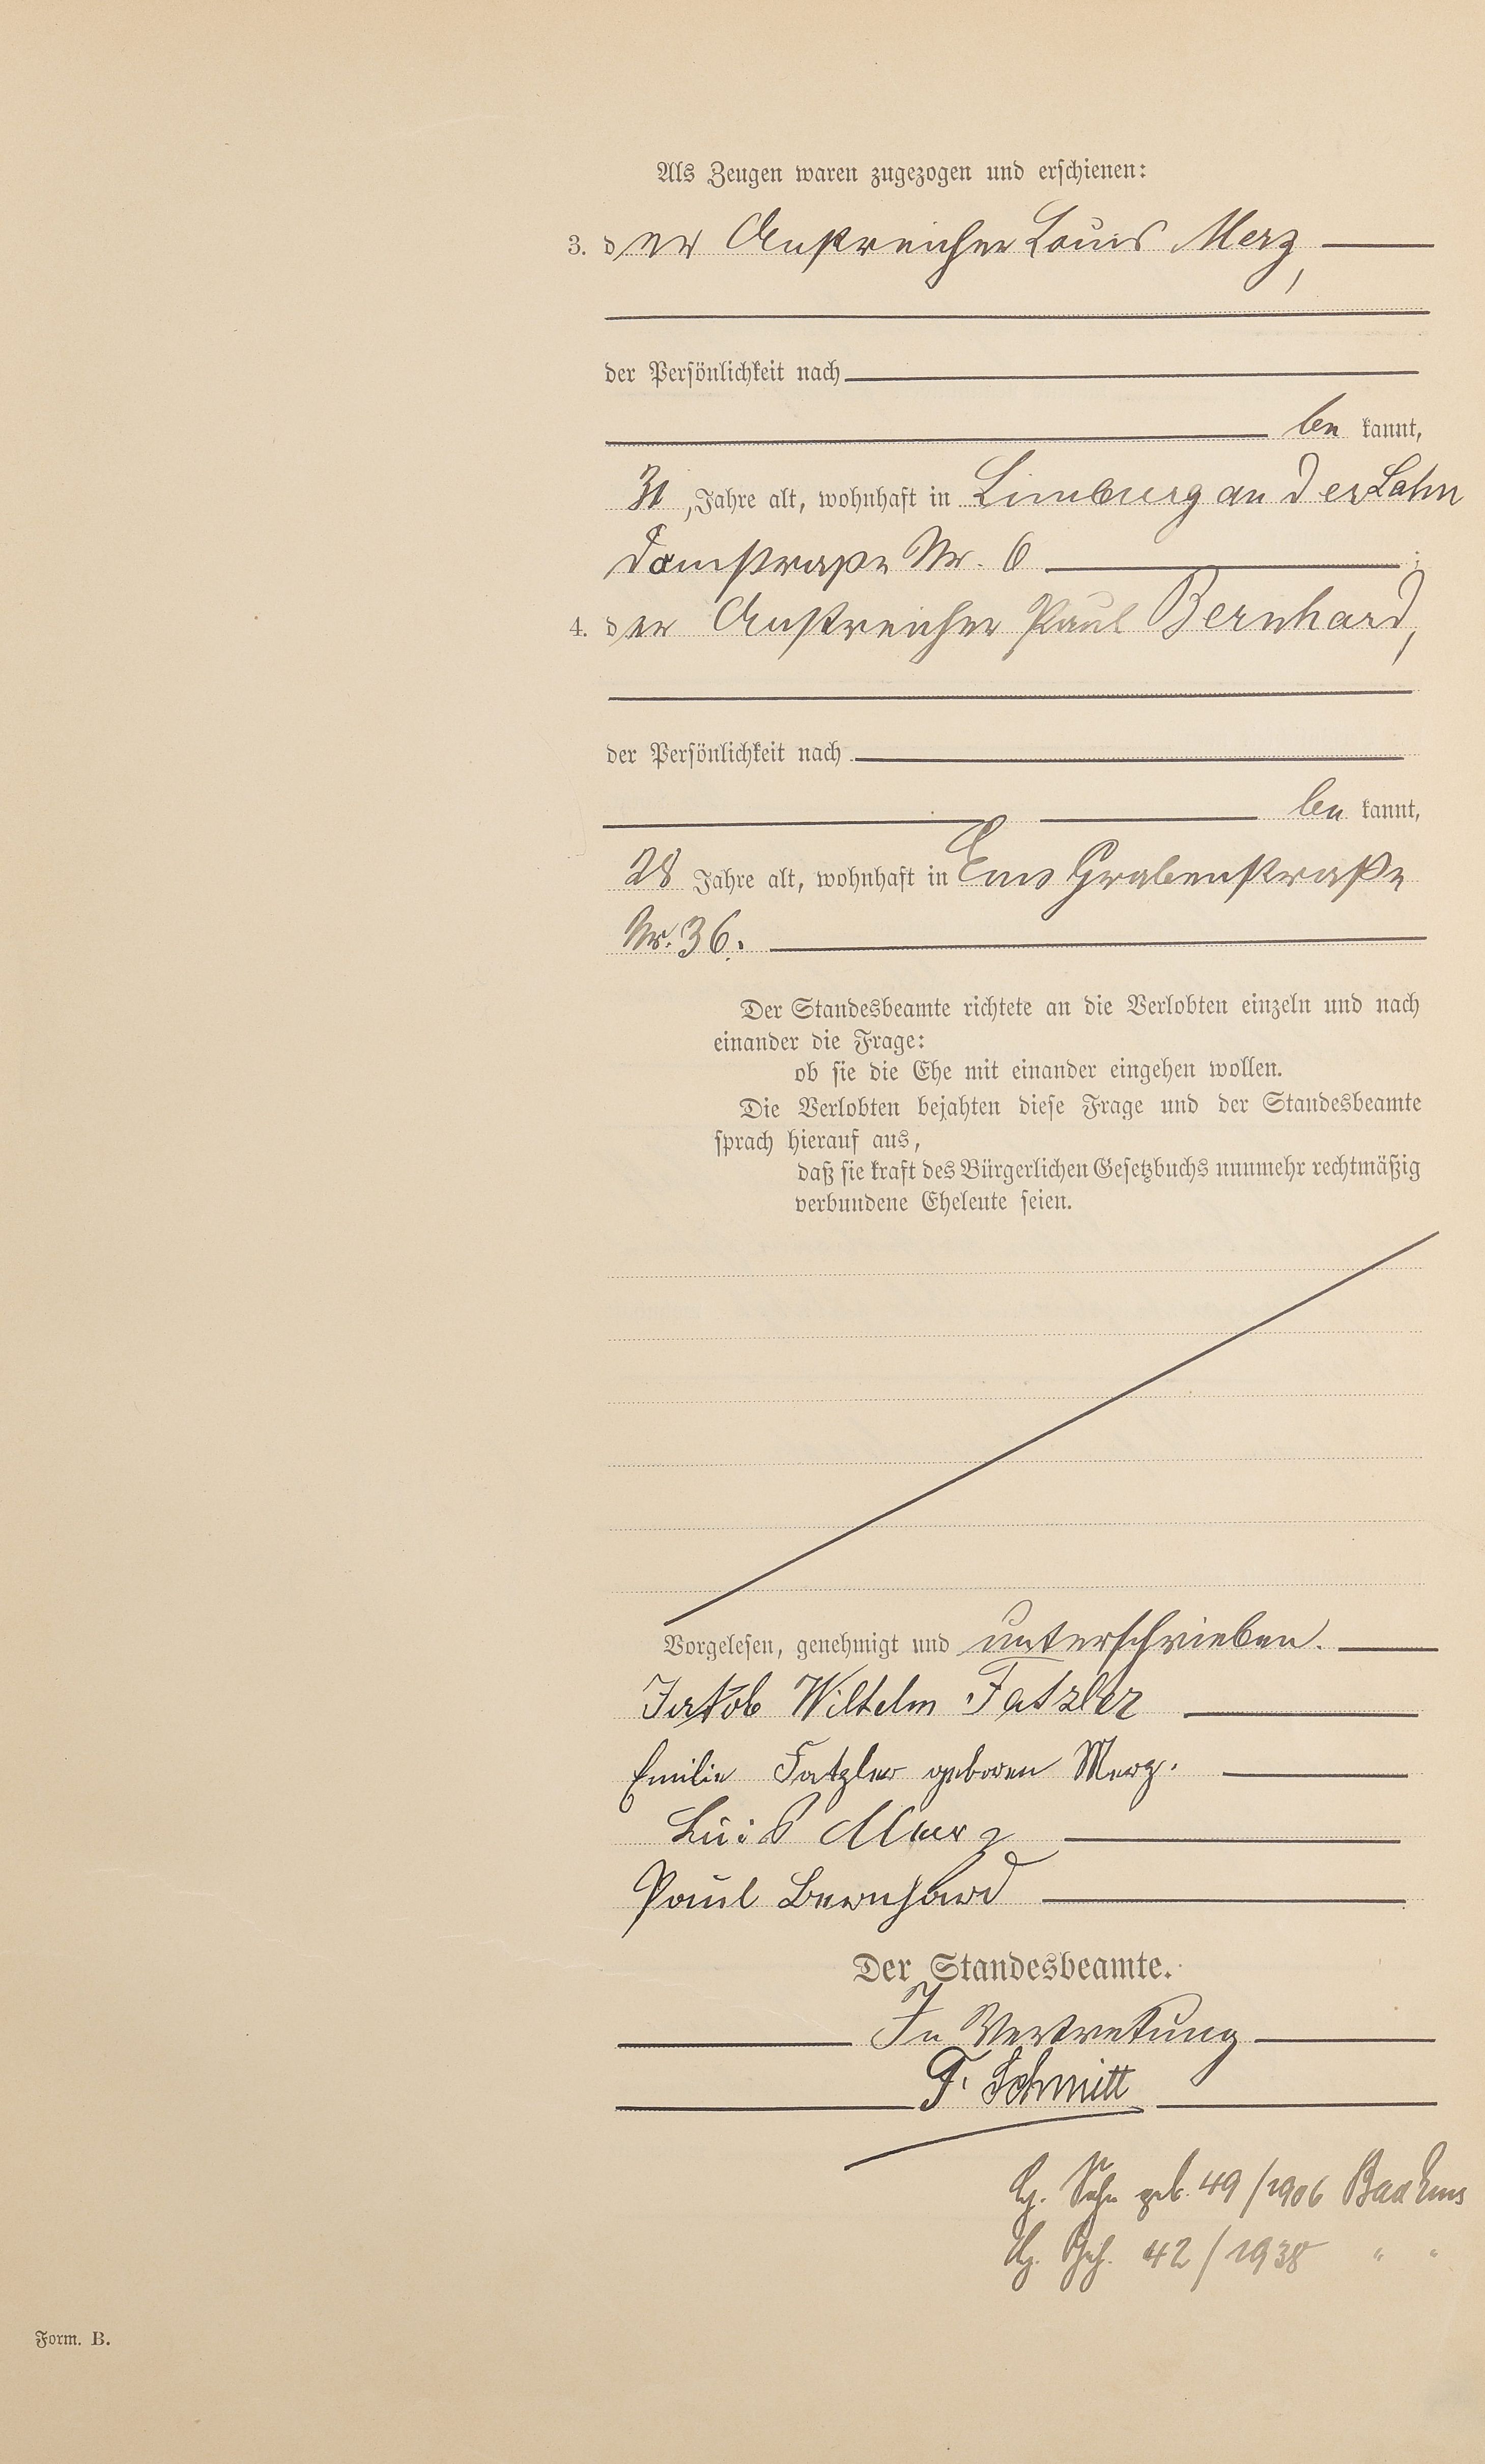 Als Zeugen waren zugezogen und erschienen:
3. der Anstreicher Louis Merz,
der Persönlichkeit nach
be kannt,
31 Jahre alt, wohnhaft in Limburg an der Lahn
Domstraße Nr. 6 ;
4. der Anstreicher Paul Bernhard,
der Persönlichkeit nach
be kannt,
28 Jahre alt, wohnhaft in Ems Grabenstraße
Nr. 36.
Der Standesbeamte richtete an die Verlobten einzeln und nach
einander die Frage:
ob sie die Ehe mit einander eingehen wollen.
Die Verlobten bejahten diese Frage und der Standesbeamte
sprach hierauf aus,
daß sie kraft des Bürgerlichen Gesetzbuchs nunmehr rechtmäßig
verbundene Eheleute seien.
Vorgelesen, genehmigt und unterschrieben.
Jakob Wilhelm Fatzler
Emilie Fatzler geboren Merz.
Luis Merz
Paul Bernhard
Der Standesbeamte.
In Vertretung
F. Schmitt
Sohn geb. 49/1906 Bad Ems
42/1938 " "
Form. B.